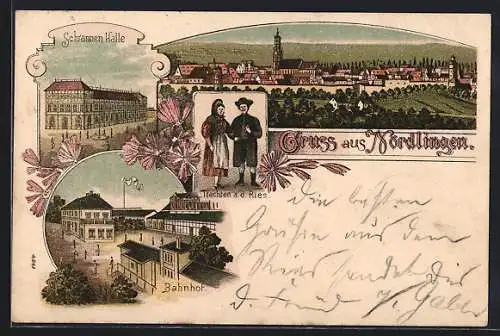 Schrannen Halle
Gruss aus Nördlingen.
Trachten a. d. Ries.
Bahnhof.
Die besten
Grüße aus dem
Ries sendet
d. Freund